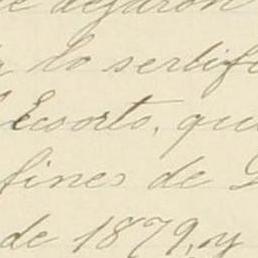 dejaron
lo sertifi
Ecsorto, qu
fines de
de 1879, y